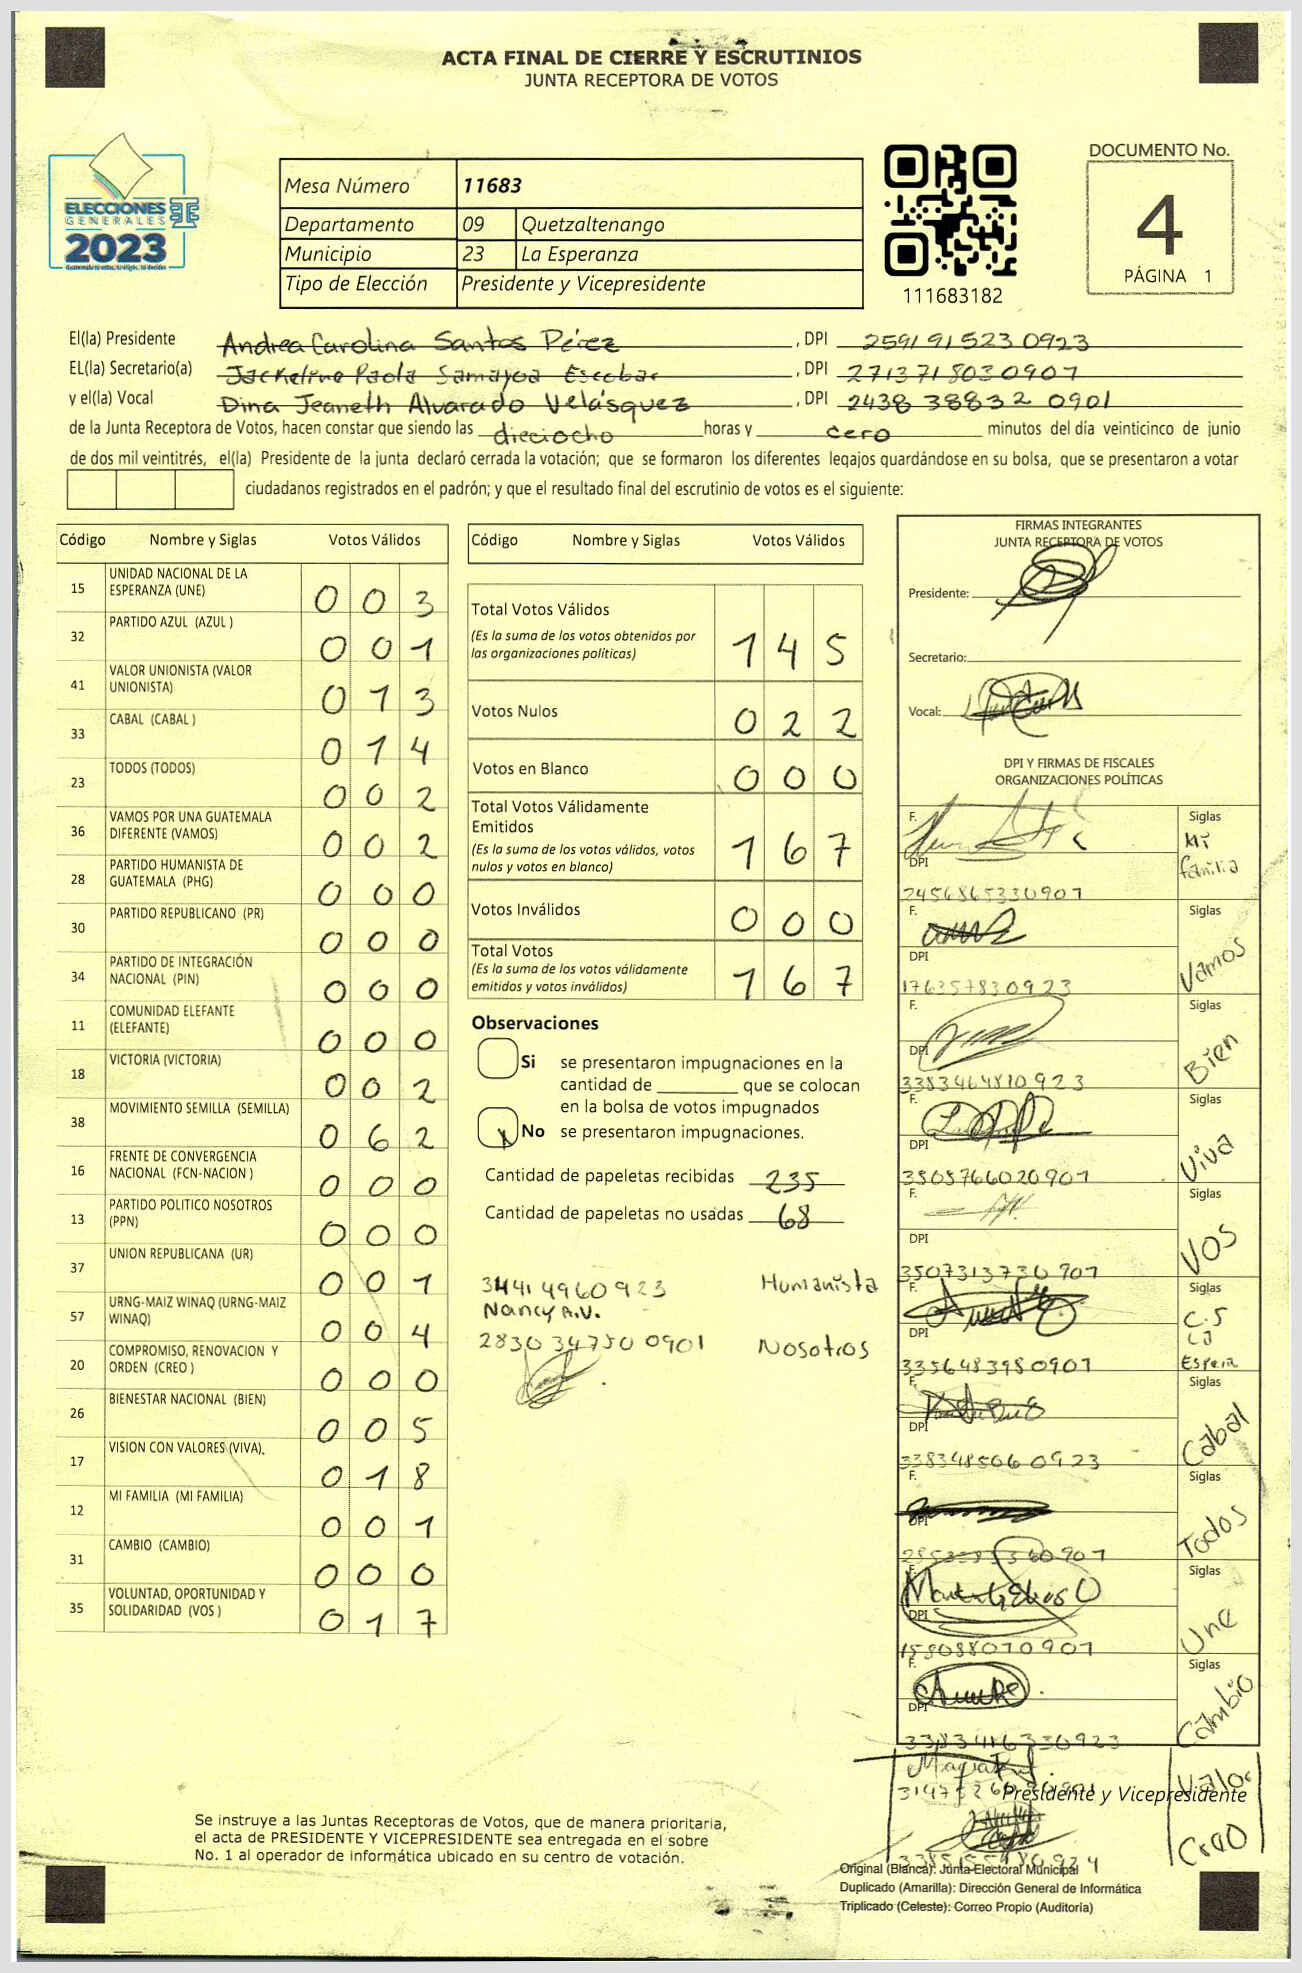 ACTA FINAL DE CIERRE Y ESCRUTINIOS
JUNTA RECEPTORA DE VOTOS
ELECCIONES
GENERALES
2023
Mesa Número 11683
Departamento 09 Quetzaltenango
Municipio 23 La Esperanza
Tipo de Elección Presidente y Vicepresidente
111683182
DOCUMENTO No.
4
PÁGINA 1
El(la) Presidente Andrea Carolina Santos Pérez, DPI 2591915230923
EL(la) Secretario(a) Jackeline Paola Samayoa Escobar, DPI 2713718030901
y el(la) Vocal Dina Jeaneth Alvarado Velásquez, DPI 2438 38832 0901
de la Junta Receptora de Votos, hacen constar que siendo las dieciocho horas y cero minutos del día veinticinco de junio
de dos mil veintitrés, el(la) Presidente de la junta declaró cerrada la votación; que se formaron los diferentes legajos guardándose en su bolsa, que se presentaron a votar
ciudadanos registrados en el padrón; y que el resultado final del escrutinio de votos es el siguiente:
Código Nombre y Siglas Votos Válidos
15 UNIDAD NACIONAL DE LA ESPERANZA (UNE) 0 0 3
32 PARTIDO AZUL (AZUL ) 0 0 1
41 VALOR UNIONISTA (VALOR UNIONISTA) 0 1 3
33 CABAL (CABAL ) 0 1 4
23 TODOS (TODOS) 0 0 2
36 VAMOS POR UNA GUATEMALA DIFERENTE (VAMOS) 0 0 2
28 PARTIDO HUMANISTA DE GUATEMALA (PHG) 0 0 0
30 PARTIDO REPUBLICANO (PR) 0 0 0
34 PARTIDO DE INTEGRACIÓN NACIONAL (PIN) 0 0 0
11 COMUNIDAD ELEFANTE (ELEFANTE) 0 0 0
18 VICTORIA (VICTORIA) 0 0 2
38 MOVIMIENTO SEMILLA (SEMILLA) 0 6 2
16 FRENTE DE CONVERGENCIA NACIONAL (FCN-NACION ) 0 0 0
13 PARTIDO POLITICO NOSOTROS (PPN) 0 0 0
37 UNION REPUBLICANA (UR) 0 0 1
57 URNG-MAIZ WINAQ (URNG-MAIZ WINAQ) 0 0 4
20 COMPROMISO, RENOVACION Y ORDEN (CREO ) 0 0 0
26 BIENESTAR NACIONAL (BIEN) 0 0 5
17 VISION CON VALORES (VIVA). 0 1 8
12 MI FAMILIA (MI FAMILIA) 0 0 1
31 CAMBIO (CAMBIO) 0 0 0
35 VOLUNTAD, OPORTUNIDAD Y SOLIDARIDAD (VOS ) 0 1 7
Código Nombre y Siglas Votos Válidos
Total Votos Válidos
(Es la suma de los votos obtenidos por
las organizaciones políticas) 1 4 5
Votos Nulos 0 2 2
Votos en Blanco 0 0 0
Total Votos Válidamente
Emitidos
(Es la suma de los votos válidos, votos
nulos y votos en blanco) 1 6 7
Votos Inválidos 0 0 0
Total Votos
(Es la suma de los votos válidamente
emitidos y votos inválidos) 1 6 7
Observaciones
Si se presentaron impugnaciones en la
cantidad de que se colocan
en la bolsa de votos impugnados
X No se presentaron impugnaciones.
Cantidad de papeletas recibidas 235
Cantidad de papeletas no usadas 68
34414960923 Humanista
Nancy A.V.
2830 34750 0901 Nosotros
FIRMAS INTEGRANTES
JUNTA RECEPTORA DE VOTOS
Presidente:
Secretario:
Vocal:
DPI Y FIRMAS DE FISCALES
ORGANIZACIONES POLÍTICAS
F. Siglas
DPI Mi familia
2456865330901
F. Siglas
DPI Vamos
176357830923
F. Siglas
DPI Bien
3383464810923
F. Siglas
DPI Viva
3505766020901
F. Siglas
DPI VOS
3507313730901
Siglas
DPI
3356483980901
F. Siglas
DPI Cabal
3383485060923
F. Siglas
DPI Todos
F. Siglas
DPI Une
158088070901
F. Siglas
DPI Cambio
3383416330923
Valor
Presidente y Vicepresidente
Creo
Se instruye a las Juntas Receptoras de Votos, que de manera prioritaria,
el acta de PRESIDENTE Y VICEPRESIDENTE sea entregada en el sobre
No. 1 al operador de informática ubicado en su centro de votación.
Original (Blanca): Junta Electoral Municipal
Duplicado (Amarilla): Dirección General de Informática
Triplicado (Celeste): Correo Propio (Auditoría)